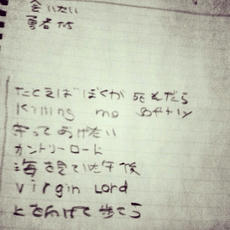 会いたい
勇者たち
たとえば ぼくが 死んだら
Killing me softly
守ってあげたい
カントリーロード
海を見ていた午後
virgin Lord
上を向いて 歩こう